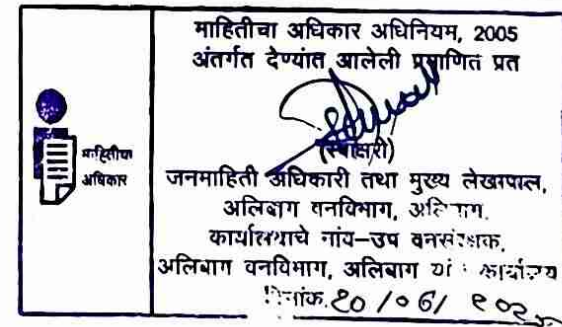 माहितीचा
अधिकार
माहितीचा अधिकार अधिनियम, 2005
अंतर्गत देण्यांत आलेली प्रमाणित प्रत
(स्वाक्षरी)
जनमाहिती अधिकारी तथा मुख्य लेखापाल,
अलिबाग वनविभाग, अलिबाग.
कार्यालयाचे नांव-उप वनसंरक्षक,
अलिबाग वनविभाग, अलिबाग यांचे कार्यालय
दिनांक. २० /०6/